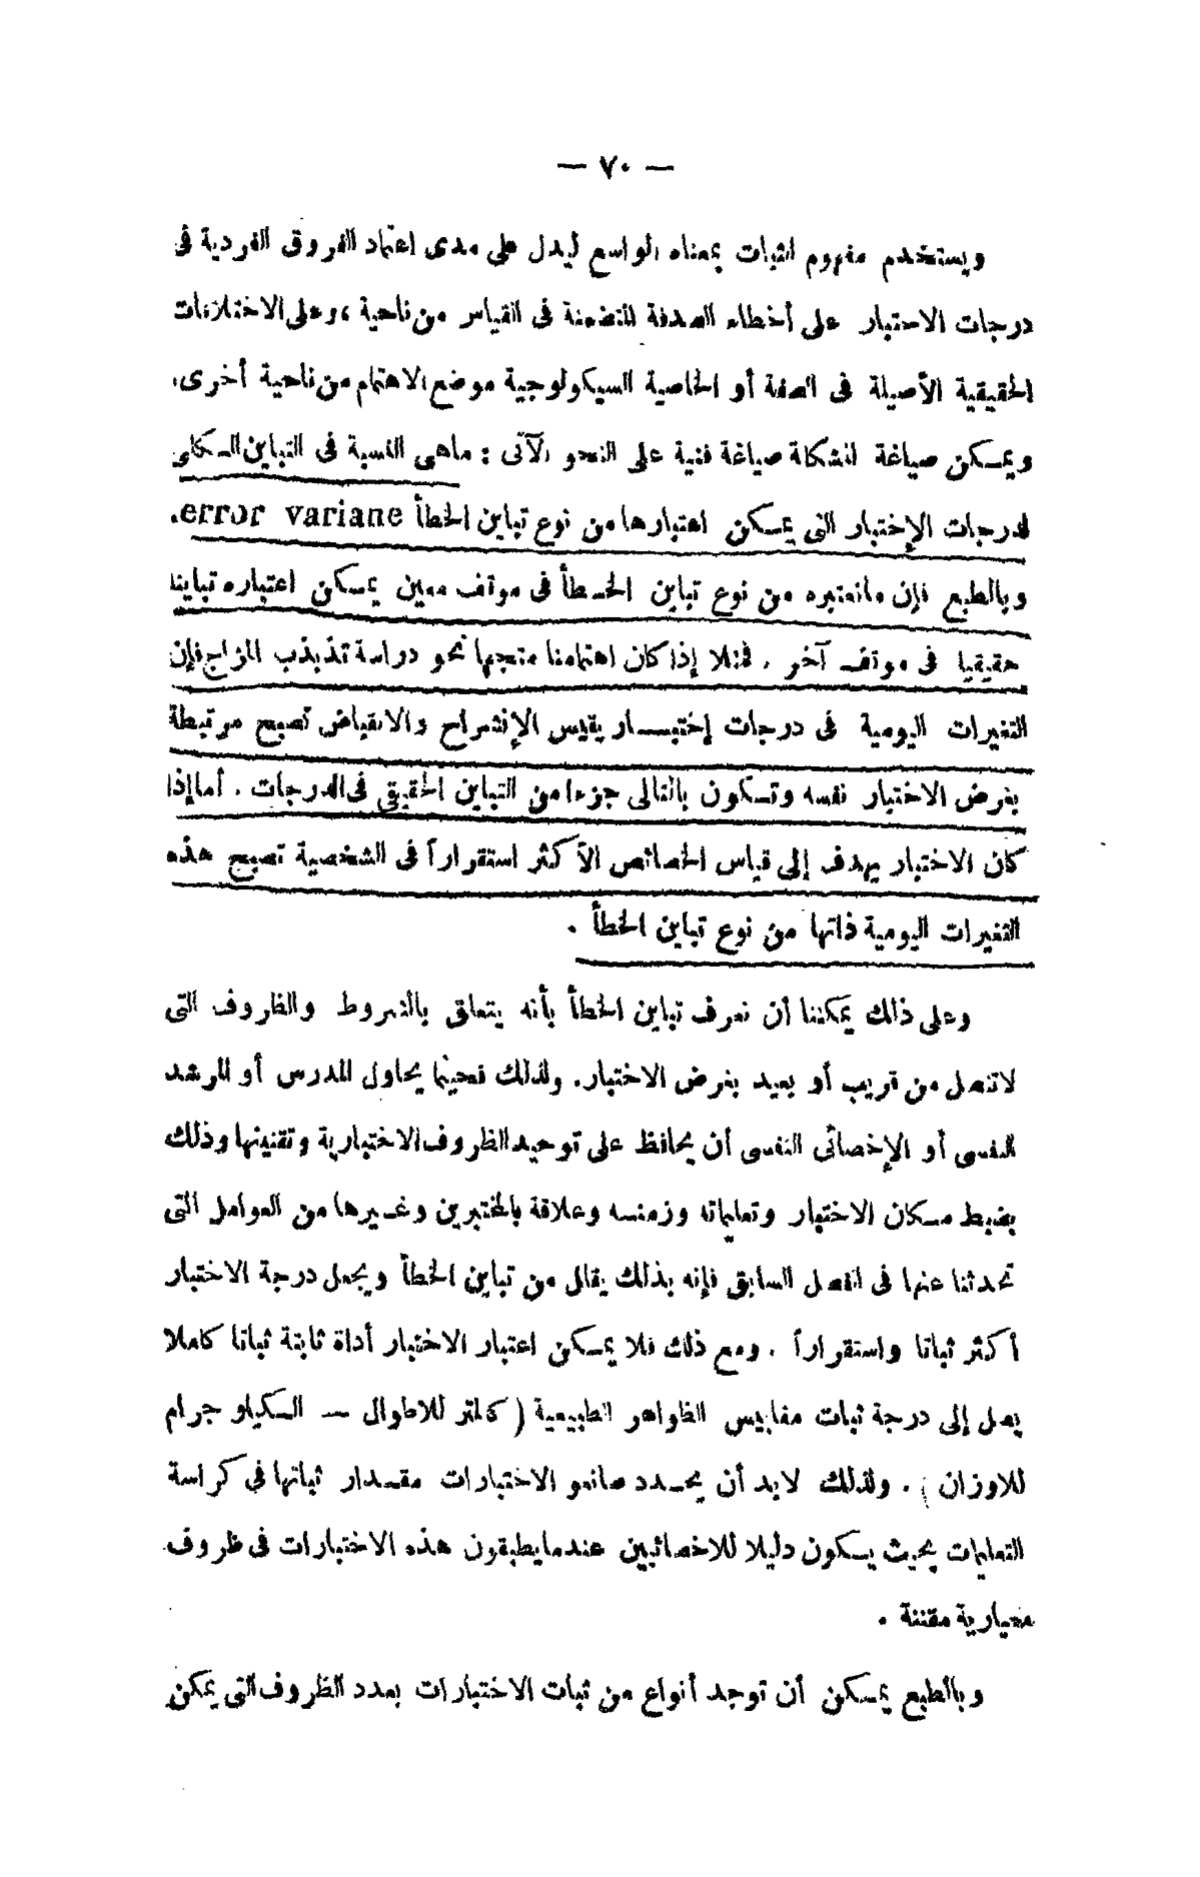 — ٧٠ —
ويستخدم مفهوم الثبات بمعناه الواسع ليدل على مدى اعتماد الفروق الفردية فى
درجات الاختبار على أخطاء الصدفة المتضمنة فى القياس من ناحية ، وعلى الاختلافات
الحقيقية الأصيلة فى الصفة أو الخاصية السيكولوجية موضع الاهتمام من ناحية أخرى.
ويمكن صياغة المشكلة صياغة فنية على النحو الآتى : ماهى النسبة فى التباين الكلى
لدرجات الإختبار التى يمكن اعتبارها من نوع تباين الخطأ error variane.
وبالطبع فإن مانعتبره من نوع تباين الخطأ فى موقف معين يمكن اعتباره تباينا
حقيقيا فى موقف آخر . فمثلا إذا كان اهتمامنا متجها نحو دراسة تذبذب المزاج فإن
التغيرات اليومية فى درجات إختبار يقيس الإنشراح والانقباض تصبح مرتبطة
بغرض الاختبار نفسه وتكون بالتالى جزءا من التباين الحقيقى فى الدرجات . أما إذا
كان الاختبار يهدف إلى قياس الخصائص الأكثر استقراراً فى الشخصية تصبح هذه
التغيرات اليومية ذاتها من نوع تباين الخطأ .
وعلى ذلك يمكننا أن نعرف تباين الخطأ بأنه يتعلق بالشروط والظروف التى
لاتتصل من قريب أو بعيد بغرض الاختبار. ولذلك فحينما يحاول المدرس أو المرشد
النفسى أو الإخصائى النفسى أن يحافظ على توحيد الظروف الاختبارية وتقنينها وذلك
بضبط مكان الاختبار وتعليماته وزمنه وعلاقة بالمختبرين وغيرها من العوامل التى
تحدثنا عنها فى الفصل السابق فإنه بذلك يقلل من تباين الخطأ ويجعل درجة الاختبار
أكثر ثباتا واستقراراً . ومع ذلك فلا يمكن اعتبار الاختبار أداة ثابتة ثباتا كاملا
يصل إلى درجة ثبات مقاييس الظواهر الطبيعية ( كالمتر للاطوال — الكيلو جرام
للاوزان ) . ولذلك لابد أن يحدد صانعو الاختبارات مقدار ثباتها فى كراسة
التعليمات بحيث يكون دليلا للاخصائيين عندما يطبقون هذه الاختبارات فى ظروف
معيارية مقننة .
وبالطبع يمكن أن توجد أنواع من ثبات الاختبارات بعدد الظروف التى يمكن